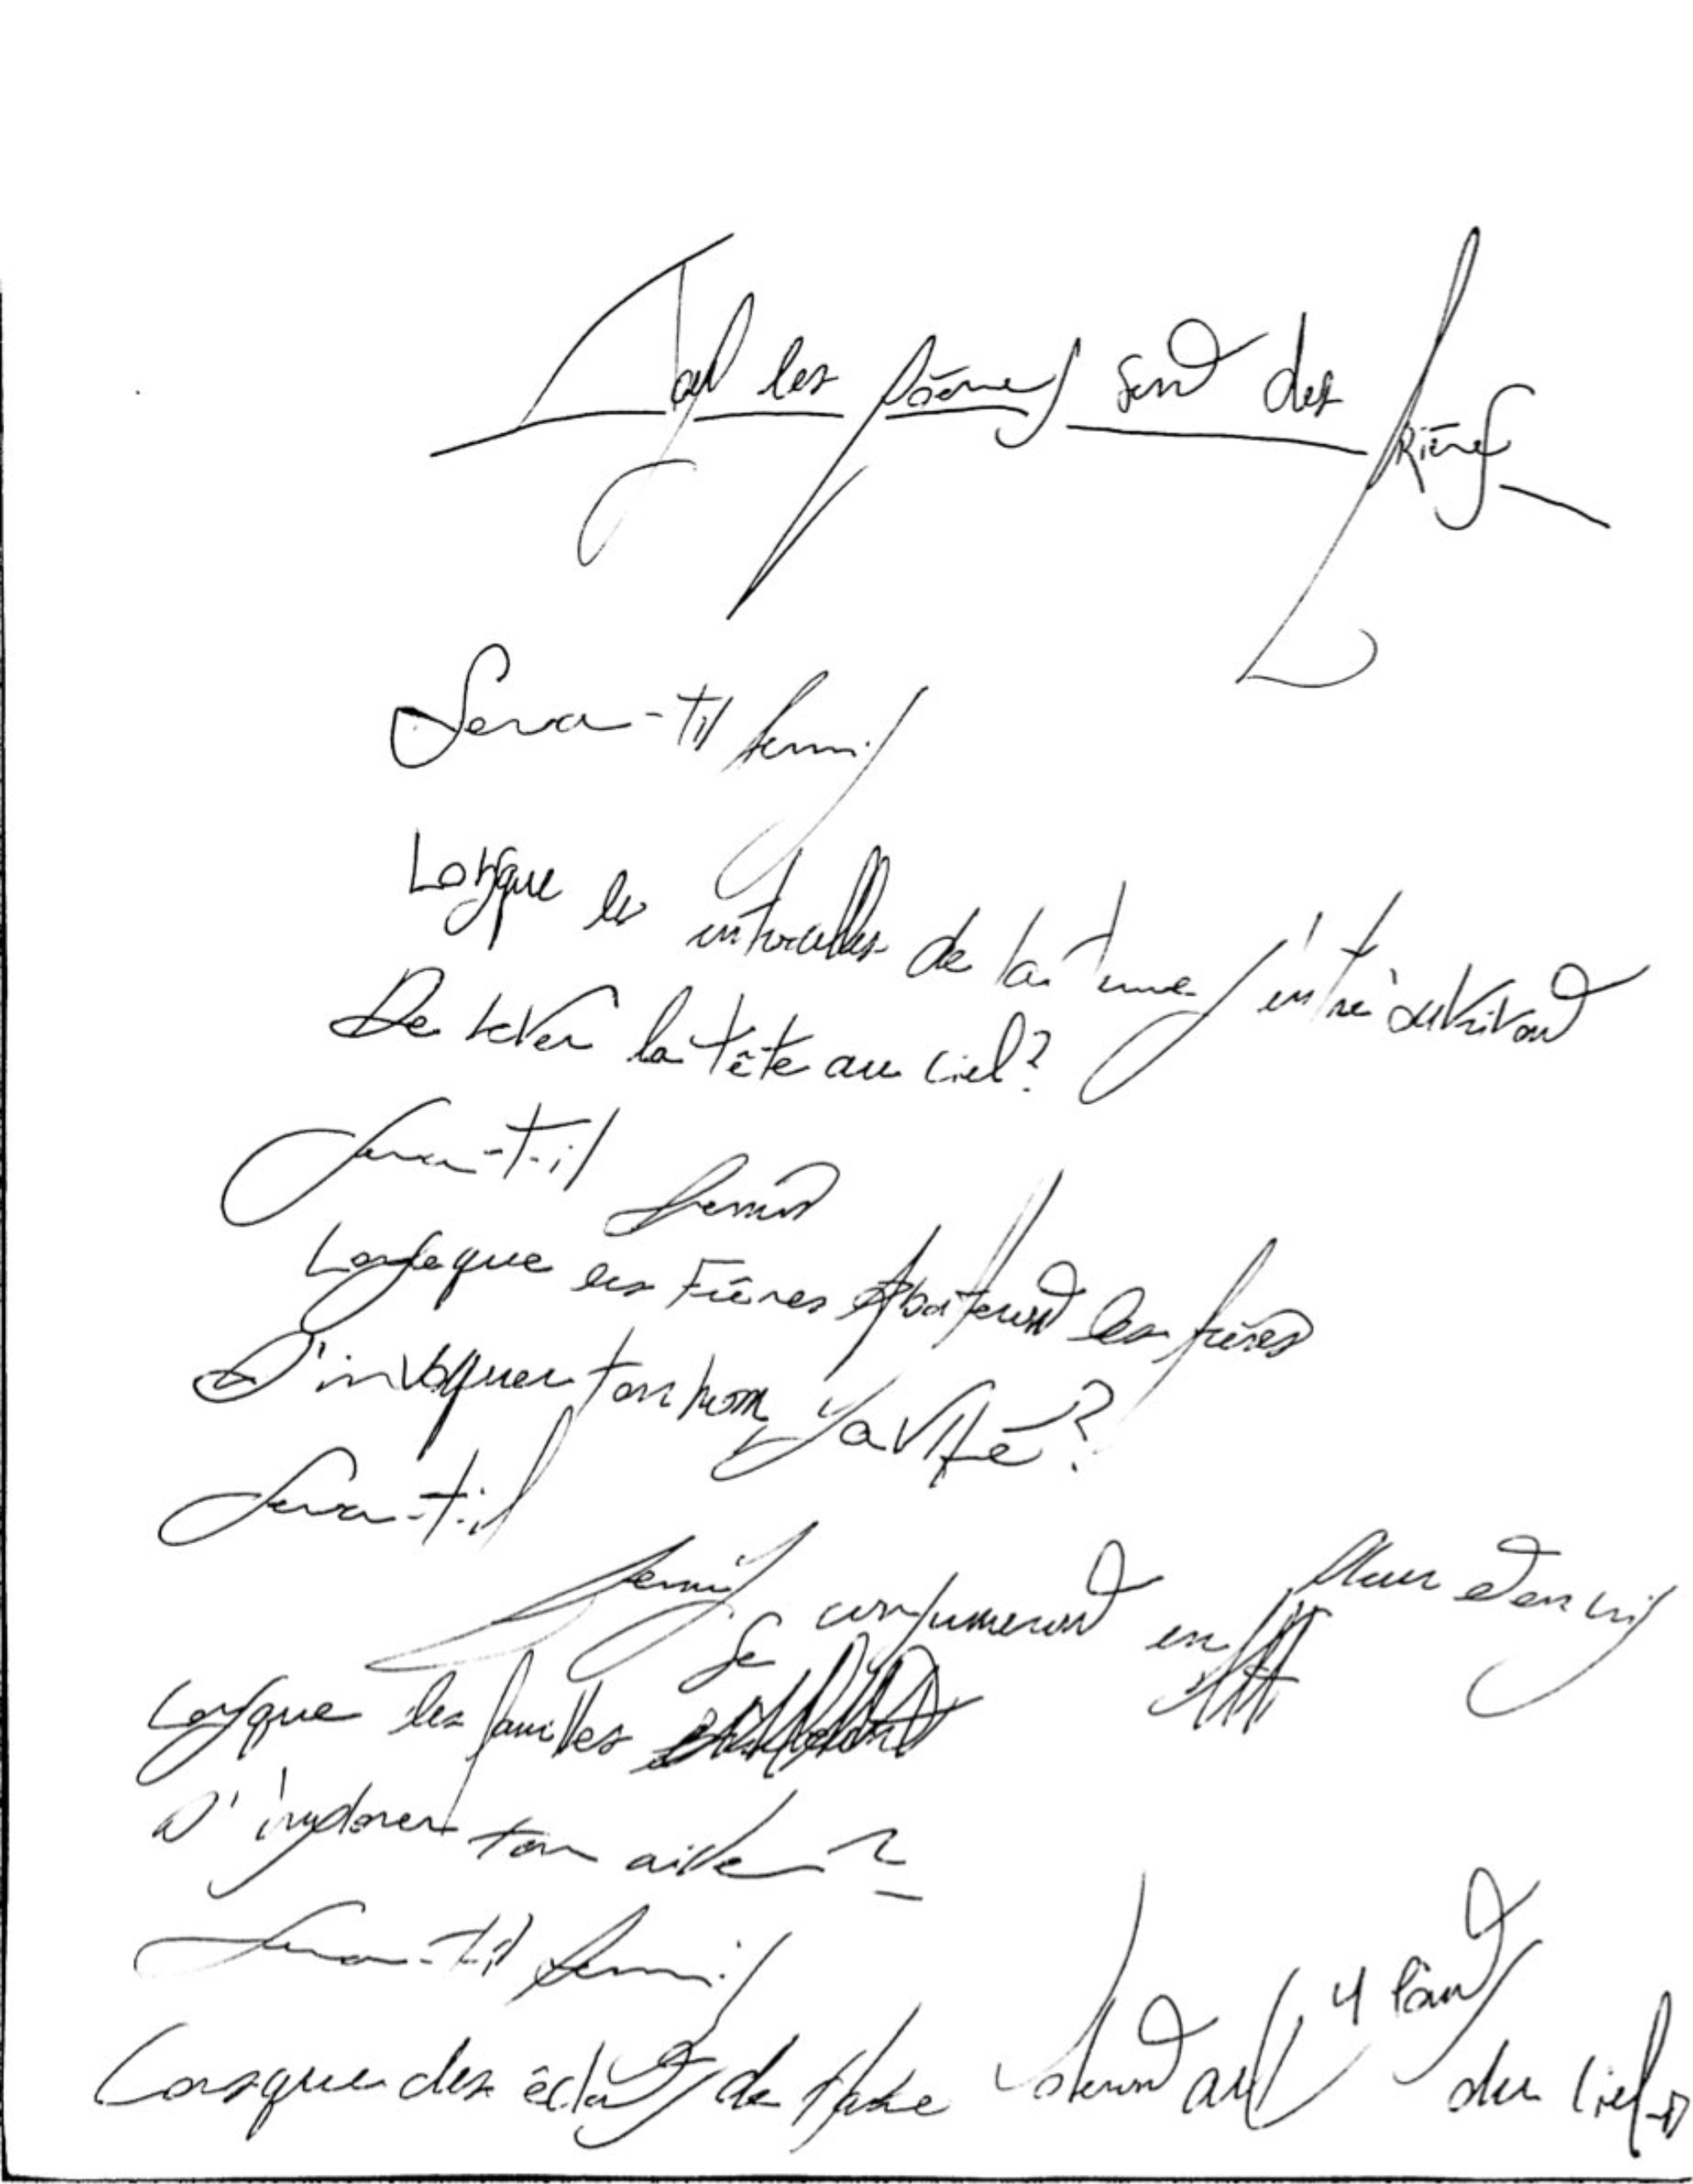 Tous les poèmes sont des prières
Sera-t-il permis
Lorsque les entrailles de la Terre s'entre'ouvriront
De lever la tête au ciel?
Sera-t-il permis
Lorsque les Frères les frères
D'invoquer ton nom Yavhé?
Sera-t-il permis
Lorsque les familles se consumeront en pleur et en cris
D'implorer ton aide?
Sera-t-il permis
Lorsque des éclats de voleront aux 4 du ciel